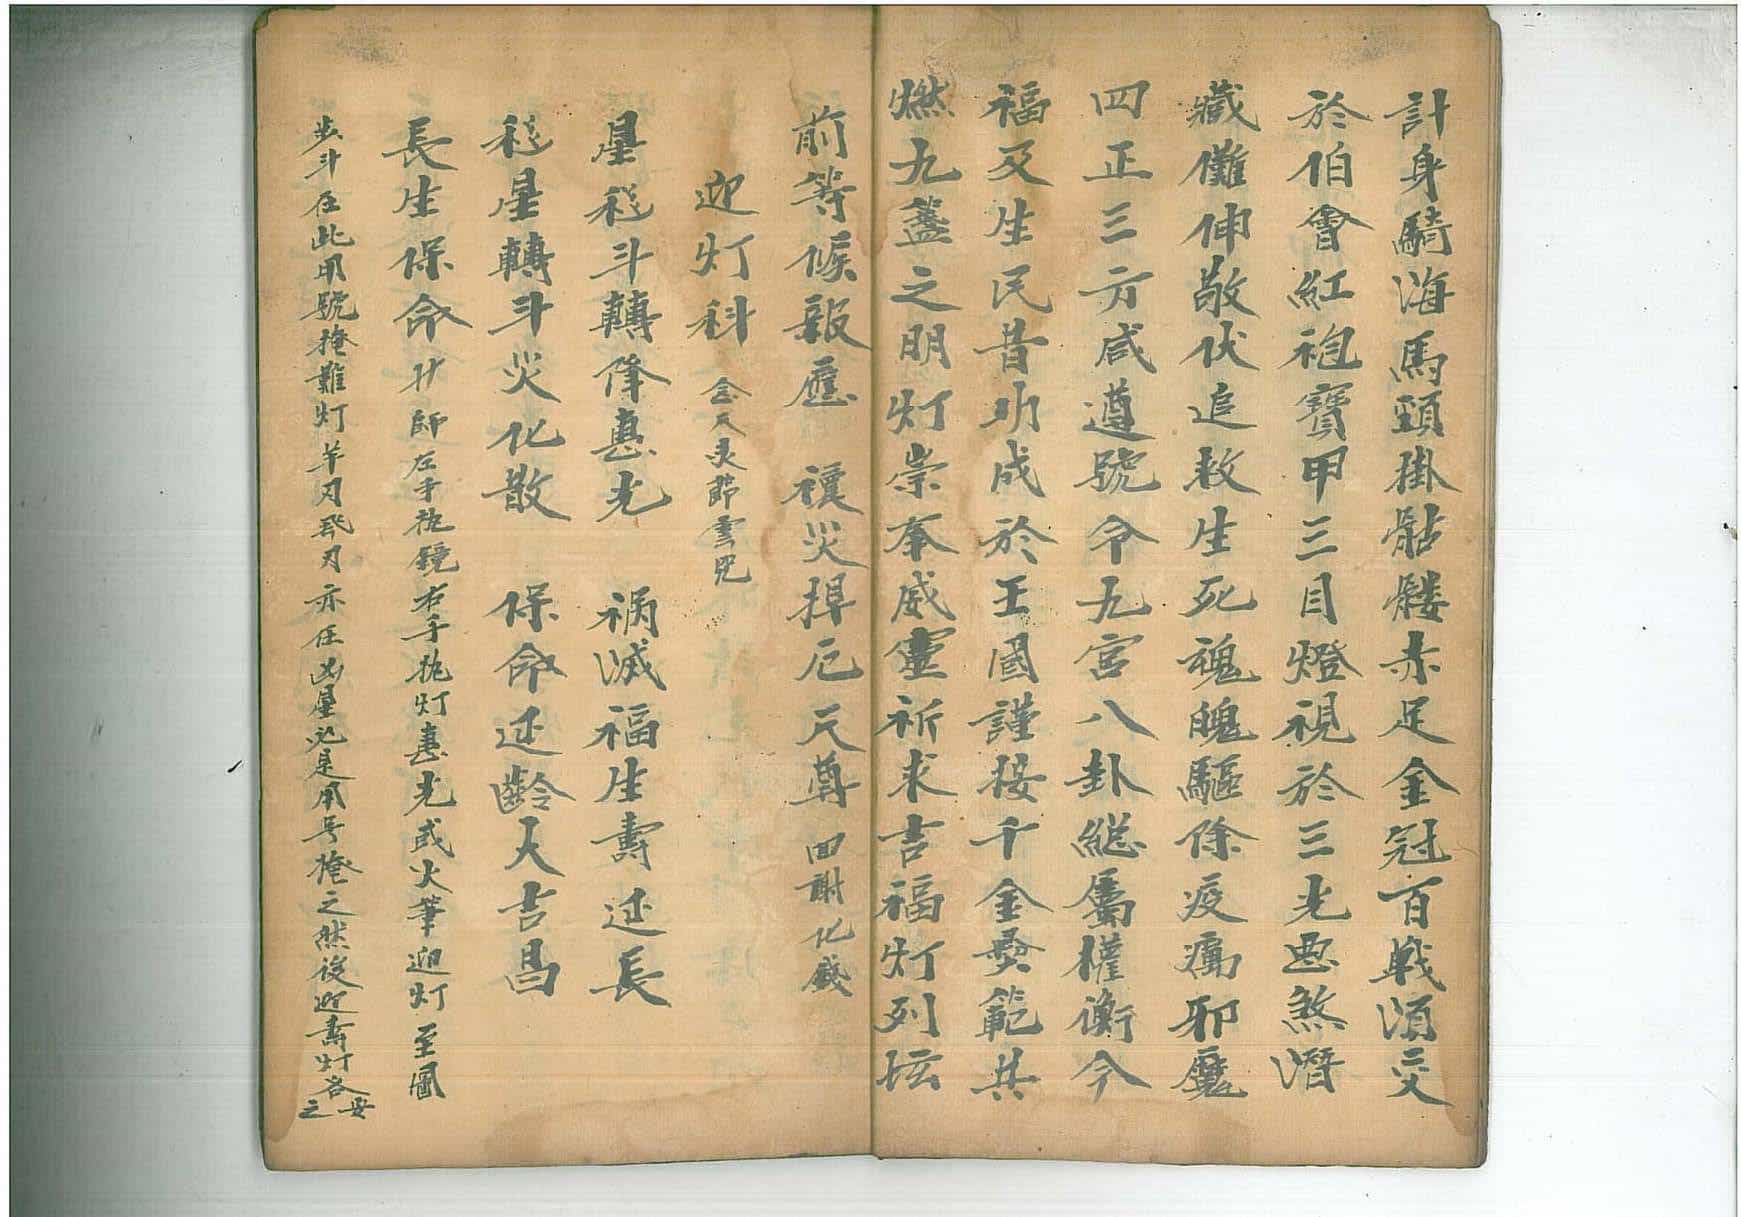 計身騎海馬頸掛骷髅赤足金冠百戰須交
於伯會紅袍寶甲三目燈視於三光惡煞潛
藏儺伸敬伏追救生死魂魄驅除疫癘邪魔
四正三方咸遵號令九宮八卦縂屬權衡今
福及生民昔功成於王國謹按千金奠範其
燃九盞之明灯崇奉威靈祈求吉福灯列坛
前等候報應 禳災捍厄天尊 回謝化錢
迎灯科 念天灵節
星移斗轉降惠光 祸滅福生壽延長
移星轉斗災化散 保命延齡大吉昌
長生保命 師左手抱鏡右手执灯 光或火筆迎灯至圖
步斗在此用號掩難灯羊刃飛刃亦在凶星 是用号掩之然後迎壽灯各安之